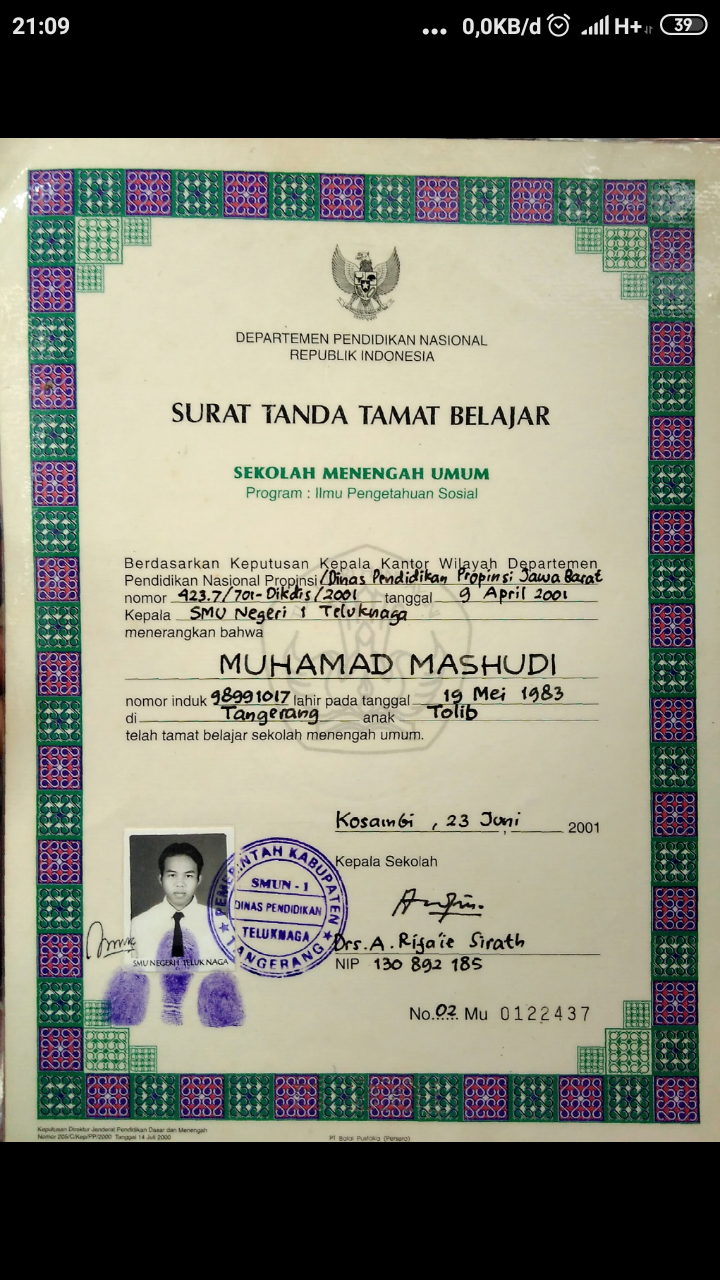 21:09
... 0,0KB/d H+ 39
DEPARTEMEN PENDIDIKAN NASIONAL
REPUBLIK INDONESIA
SURAT TANDA TAMAT BELAJAR
SEKOLAH MENENGAH UMUM
Program : Ilmu Pengetahuan Sosial
Berdasarkan Keputusan Kepala Kantor Wilayah Departemen
Pendidikan Nasional Propinsi/Dinas Pendidikan Propinsi Jawa Barat
nomor 423.7/701-Dikdis/2001 tanggal 9 April 2001
Kepala SMU Negeri 1 Teluknaga
menerangkan bahwa
MUHAMAD MASHUDI
nomor induk 98991017 lahir pada tanggal 19 Mei 1983
di Tangerang anak Tolib
telah tamat belajar sekolah menengah umum.
Kosambi, 23 Juni 2001
Kepala Sekolah
PEMERINTAH KABUPATEN
SMUN - 1
DINAS PENDIDIKAN
TELUKNAGA
TANGERANG
SMU NEGERI 1 TELUK NAGA
Drs. A. Rifa'ie Sirath
NIP 130 892 185
No. 02 Mu 0122437
Keputusan Direktur Jenderal Pendidikan Dasar dan Menengah
Nomor 205/C/Kep/PP/2000 Tanggal 14 Juli 2000
PT Balai Pustaka (Persero)